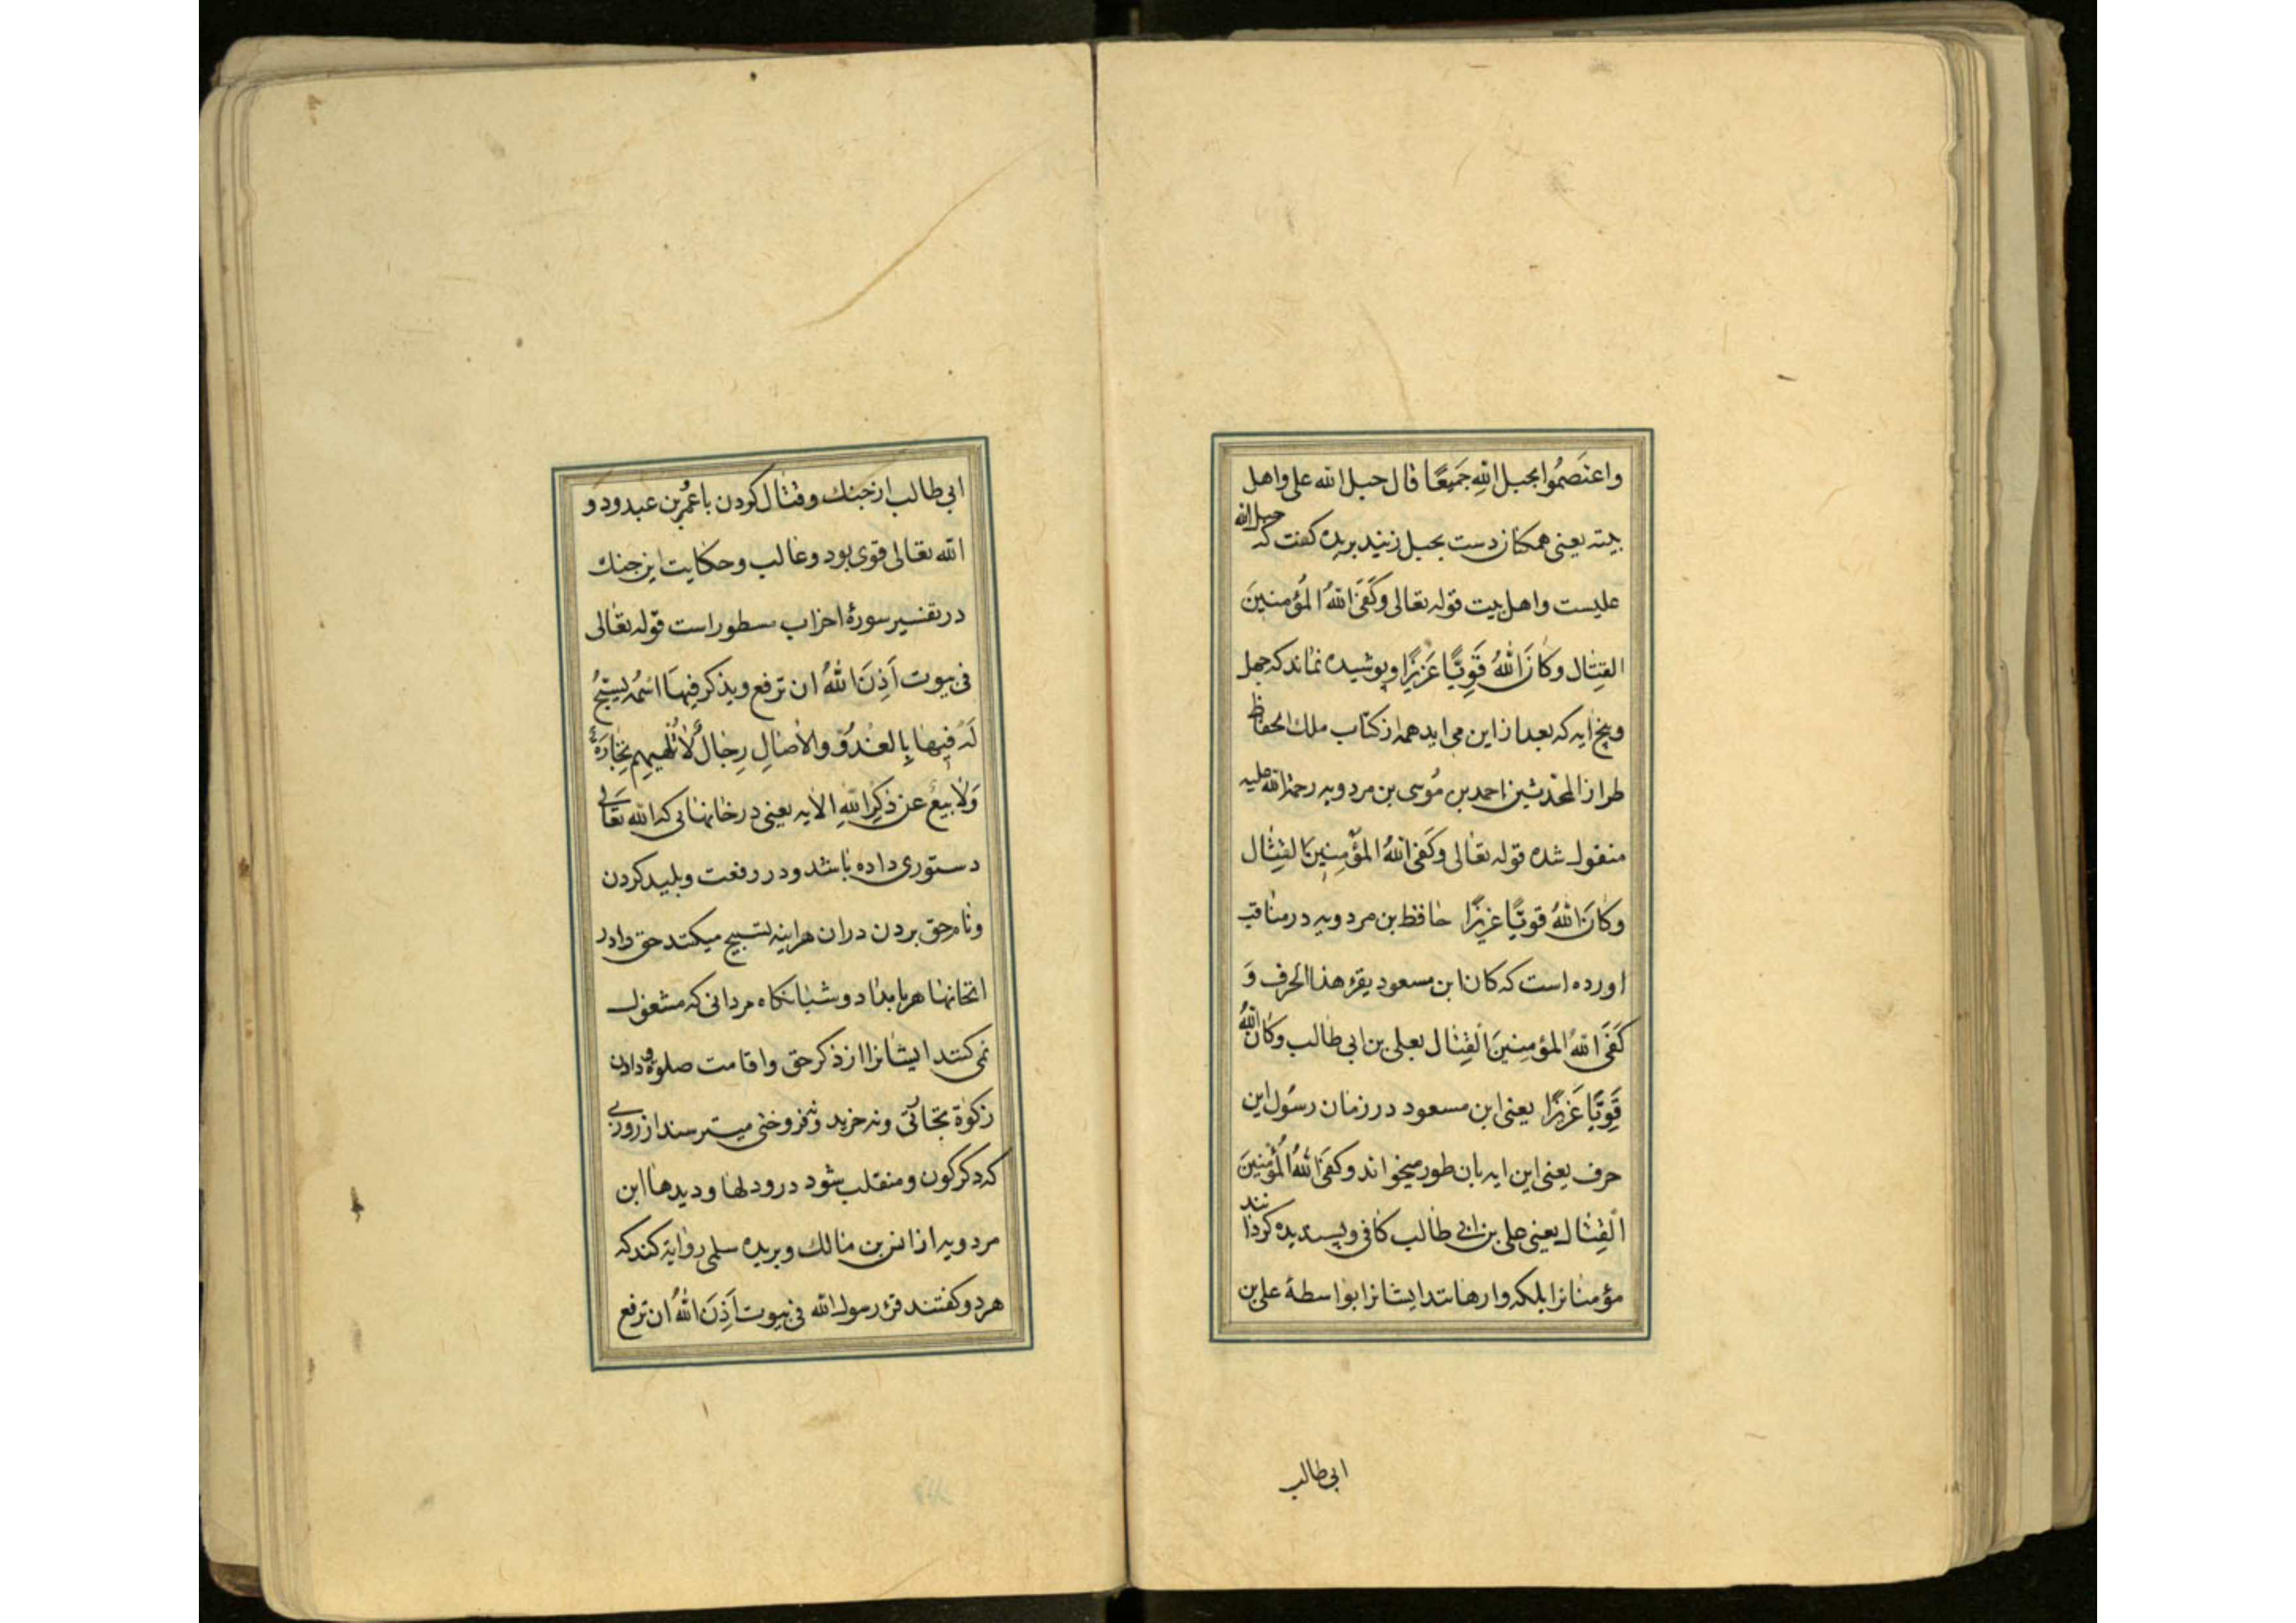 واعتَصمُوا بحبل اللهِ جَميعًا قال حبل الله علی واهل
بیته یعنی همکنان دست بحبل زنید بریده کفت که حبل الله
علیست واهل بیت قوله تعالی وَکَفَی اللهُ المؤمنینَ
القِتٰال وکانَ اللهُ قَوِیًّا عَزیزًا وپوشیده نماند که چهل
وپنج ایه که بعد از این می اید همه از کتاب ملك الحفاظ
طراز المحدثین احمد بن مُوسی بن مردویه رحمة الله علیه
منقول شده قوله تعالی وکَفی اللهُ المؤمِنینَ القِتٰال
وکانَ اللهُ قویًّا عزیزًا حافظ بن مردویه در مناقب
اورده است که کان ابن مسعود یقرء هذا الحرف وَ
کَفَی اللهُ المؤمِنینَ القِتٰال بعلی بن ابی طالب وکان اللهُ
قَوِیًّا عَزیزًا یعنی ابن مسعود در زمان رسُول این
حرف یعنی این ایه بان طور میخواند وکفَی اللهُ المُؤمنینَ
القِتٰال یعنی علی بن ابی طالب کافی وپسندیده کردانند
مؤمنانرا بلکه وارهانند ایشانرا بواسطهٔ علی بن
ابی طالب
ابی طالب از جنك وقتال کردن با عمُر بن عبدود و
الله تعالی قوی بود وغالب وحکایت این جنك
در تفسیر سورهٔ احزاب مسطور است قوله تعٰالی
فی بیوت اَذِنَ اللهُ ان ترفع ویذکر فیهَا اسمُه یسبّحُ
لَه فیها بِالغدُوّ والاصٰالِ رِجٰالٌ لٰا تُلهیهِم تِجٰارَةٌ
وَلٰا بیعٌ عن ذِکرِ اللهِ الایه یعنی در خانهائی که الله تعَالی
دستوری داده باشد ودر رفعت وبلید کردن
ونام حق بردن دران هراینه تسبیح میکنند حق دادر
انخانها هر بامداد وشبانکاه مردانی که مشغول
نمی کنند ایشانرا از ذکر حق واقامت صلوة ودادن
زکوة تجارتی ونه خرید وفروختی میترسند از روزی
که دکرکون ومنقلب شود درو دلها ودیدها ابن
مردویه از انس بن مالك وبریده سلمی روایة کند که
هر دو کفتند قرء رسول الله فی بیوت اَذِنَ اللهُ ان ترفع